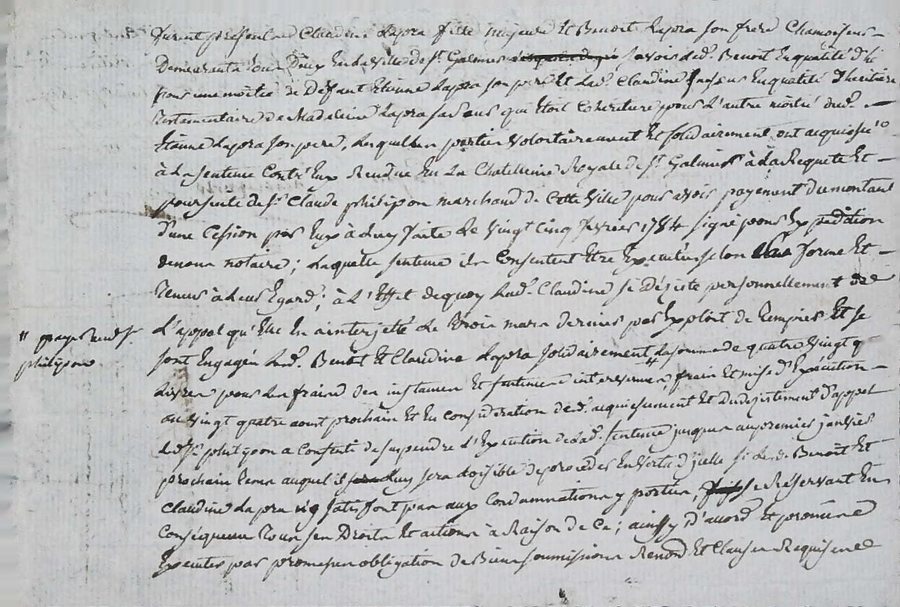 furent présents Claudine Lapra fille majeure Et Benoit Lapra son frere Chamoiseur
Demeurants tous Deux En la ville de St. Galmier savoir led. Benoit En qualité d'h'er
pour une moitié de Deffunt Etienne Lapra son pere Et lad. Claudine En qualité d'heritiere
Testamentaire de Madelaine Lapra sa sœur qui étoit Coheritiere pour L'autre moitié dud.
Etienne Lapra son pere, Lesquelles parties volontairement Et solidairement, ont acquiessé
à La sentence Contr'Eux Rendue En La Chatellenie Royale de St. Galmier à La Requete Et
poursuite de Sr. Claude philipon marchand de Cette ville pour avoir payement du montant
d'une Cession par Eux à Luy faite Le vingt cinq fevrier 1784 signé pour Expedition
notaire; Laquelle sentence ils Consentent Etre Executée selon sa forme Et
Teneur à Leur Egard; à L'Effet de quoy Lad. Claudine se Désiste personnellement de
L'appel qu'Elle En a interjetté Le Trois mars dernier par Exploit de Et se
" payer aud. Sr.
philipon
sont Engagés Led. Benoit Et Claudine Lapra solidairement " La somme de quatre vingt q
Livres pour Les fraix des instances Et sentence interets fraix Et mise d'Execution
au vingt quatre aout prochain Et En consideration de d. acquiessement Et Dudesistement d'appel
Led. Sr. philipon a Consenti de suspendre L'Execution de lad. sentence jusques au premier janvier
prochain Tems auquel il Luy sera Loisible de proceder En vertu d'icelle si Led. Benoit Et
Claudine Lapra n'y satisfont pas aux Condamnations y portées, se Reservant En
Conséquence Tous ses Droits Et actions à Raison de Ce; ainsy d'accord Et promis
Executer par promesses obligation de Biens soumissions Renond. Et Clauses Requises